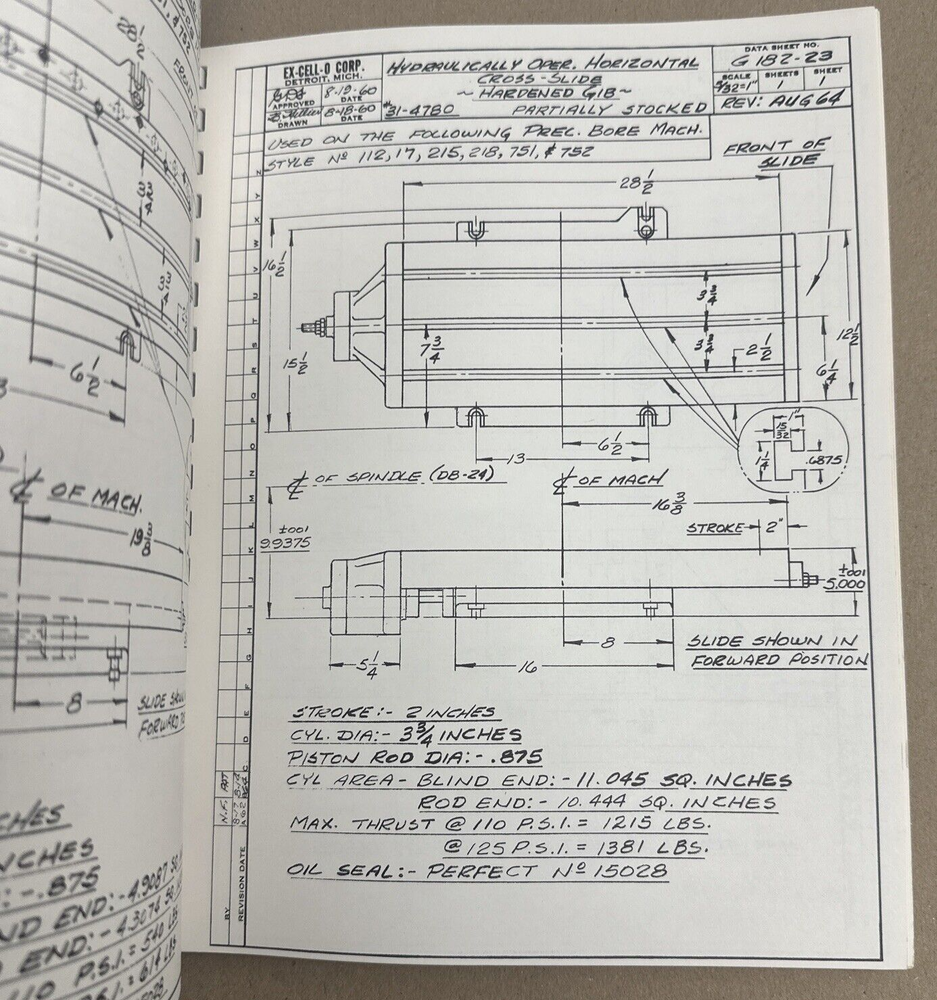 EX-CELL-O CORP.
DETROIT, MICH.
APPROVED
8-19-60
DATE
DRAWN
8-18-60
DATE
HYDRAULICALLY OPER. HORIZONTAL
CROSS-SLIDE
~ HARDENED GIB ~
#31-4780 PARTIALLY STOCKED
DATA SHEET NO.
G 182-23
SCALE
SHEETS
1
SHEET
1
REV: AUG 64
USED ON THE FOLLOWING PREC. BORE MACH.
STYLE Nº 112, 17, 215, 218, 751, & 752
FRONT OF
SLIDE
28 1/2
16 1/2
15 1/2
7 3/4
3 3/4
3 3/4
2 1/2
12 1/2
6 1/4
1"
15/32
1 1/4
.6875
6 1/2
13
℄ OF SPINDLE (DB-24)
℄ OF MACH
16 3/8
STROKE 2"
±.001
9.9375
±.001
5.000
8
16
5 1/4
SLIDE SHOWN IN
FORWARD POSITION
STROKE:- 2 INCHES
CYL. DIA:- 3 3/4 INCHES
PISTON ROD DIA:- .875
CYL AREA - BLIND END:- 11.045 SQ. INCHES
ROD END:- 10.444 SQ. INCHES
MAX. THRUST @ 110 P.S.I. = 1215 LBS.
@ 125 P.S.I. = 1381 LBS.
OIL SEAL:- PERFECT Nº 15028
BY
REVISION DATE
N.F.
Z
Y
X
W
V
U
T
S
R
Q
P
O
N
M
L
K
J
I
H
G
F
E
D
C
28 1/2
3 3/4
3 3/4
6 1/2
℄ OF MACH.
19 3/8
8
SLIDE
FORWARD
NCHES
:- .875
ND END:- 4.9087
END:- 4.3074
P.S.I. = 540 LBS